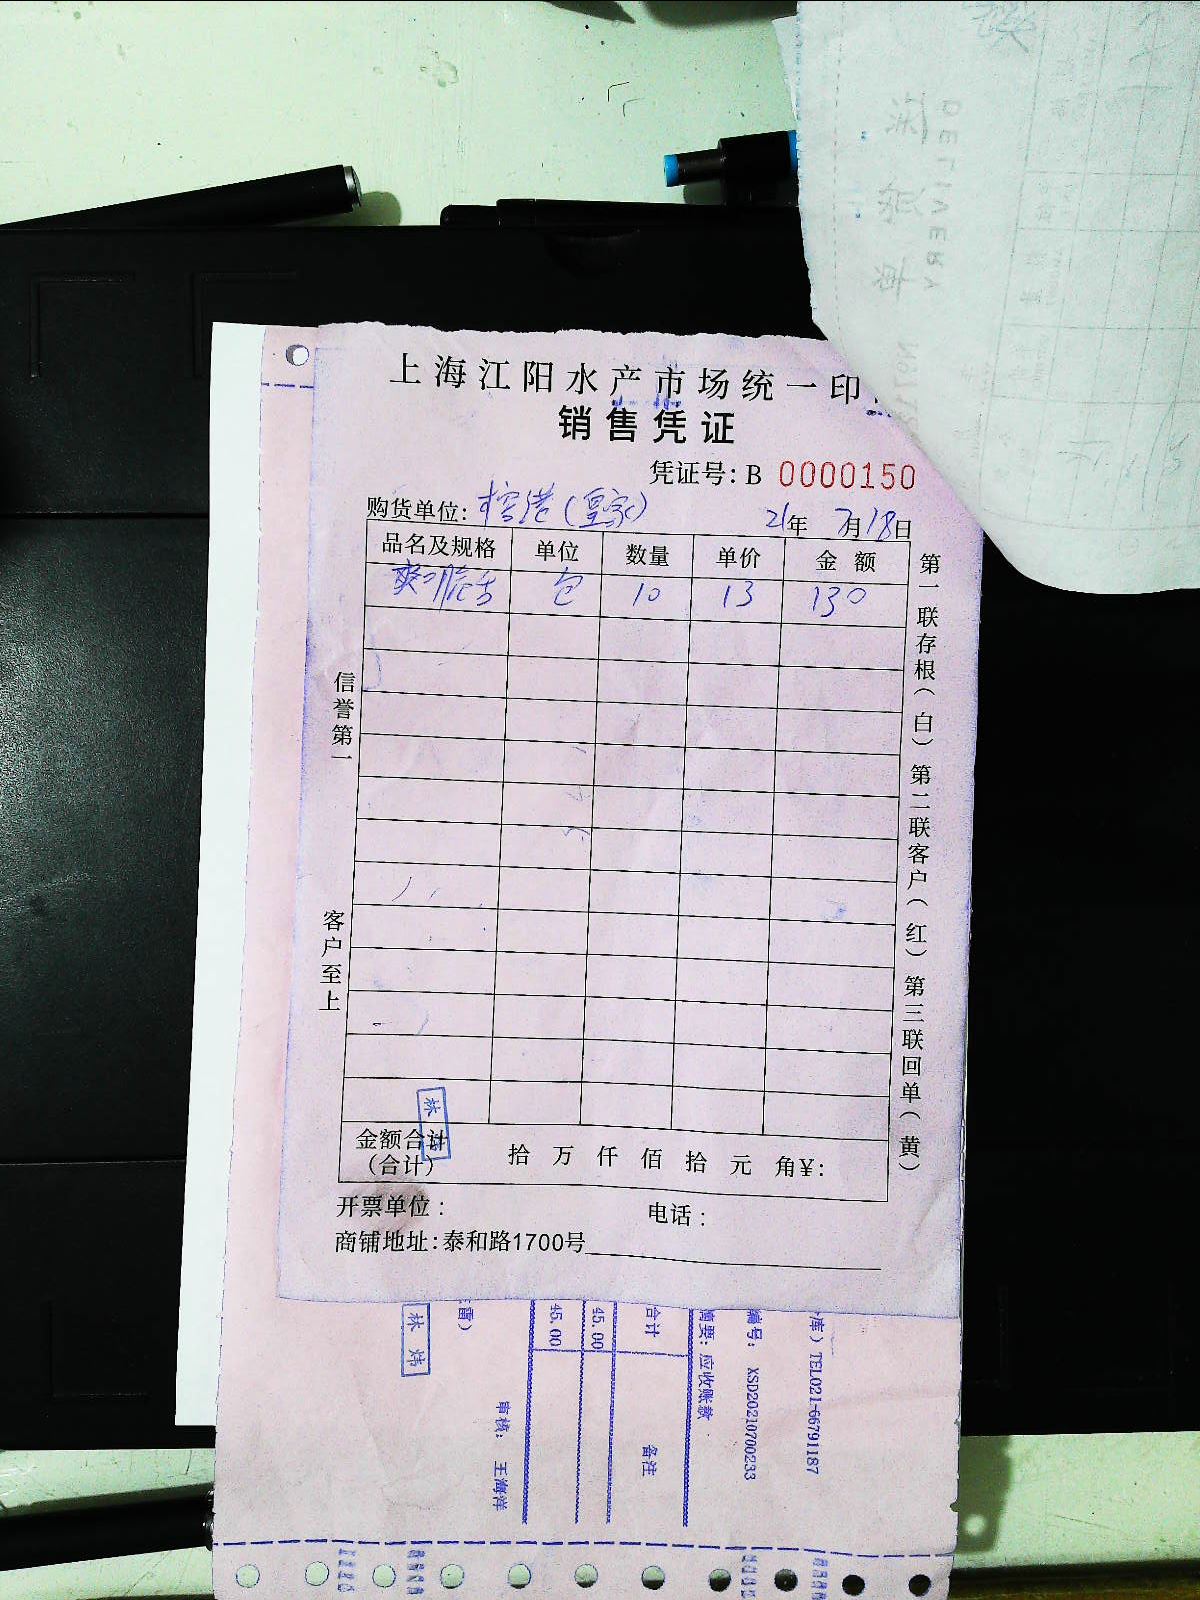 上海江阳水产市场统一印
销售凭证
凭证号: B 0000150
购货单位: 港(皇家) 21年 7月18日
品名及规格 单位 数量 单价 金 额
爽口脆舌 包 10 13 130
信誉第一
客户至上
第一联存根(白) 第二联客户(红) 第三联回单(黄)
金额合计
(合计) 拾 万 仟 佰 拾 元 角¥:
林
开票单位: 电话:
商铺地址: 泰和路1700号
库) TEL021-66791187
编号: XSD20210700233
摘要: 应收账款
合计 备注
45.00
45.00
审核: 王海祥
雷)
林炜
DELIVERY